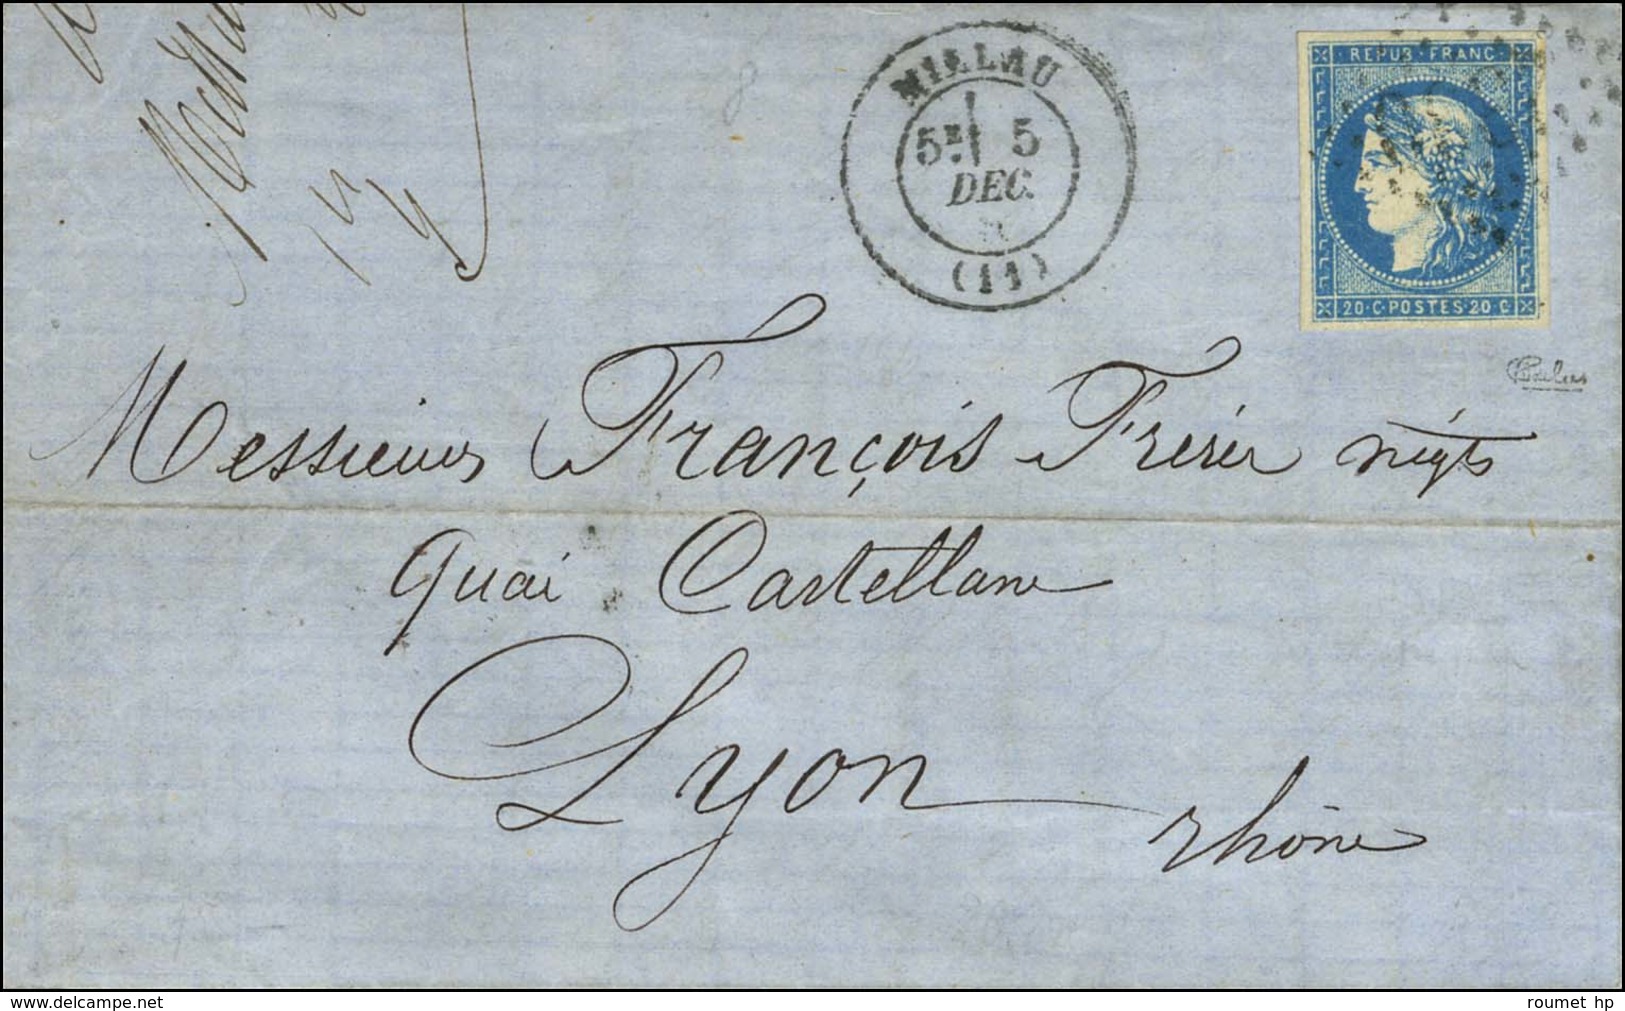 MILLAU
5E 5
DEC.
(11)
REPUB·FRANC·
20·C·POSTES·20·C
Messieurs François Frères négts
Quai Castellane
Lyon
rhône
www.delcampe.net
roumet hp